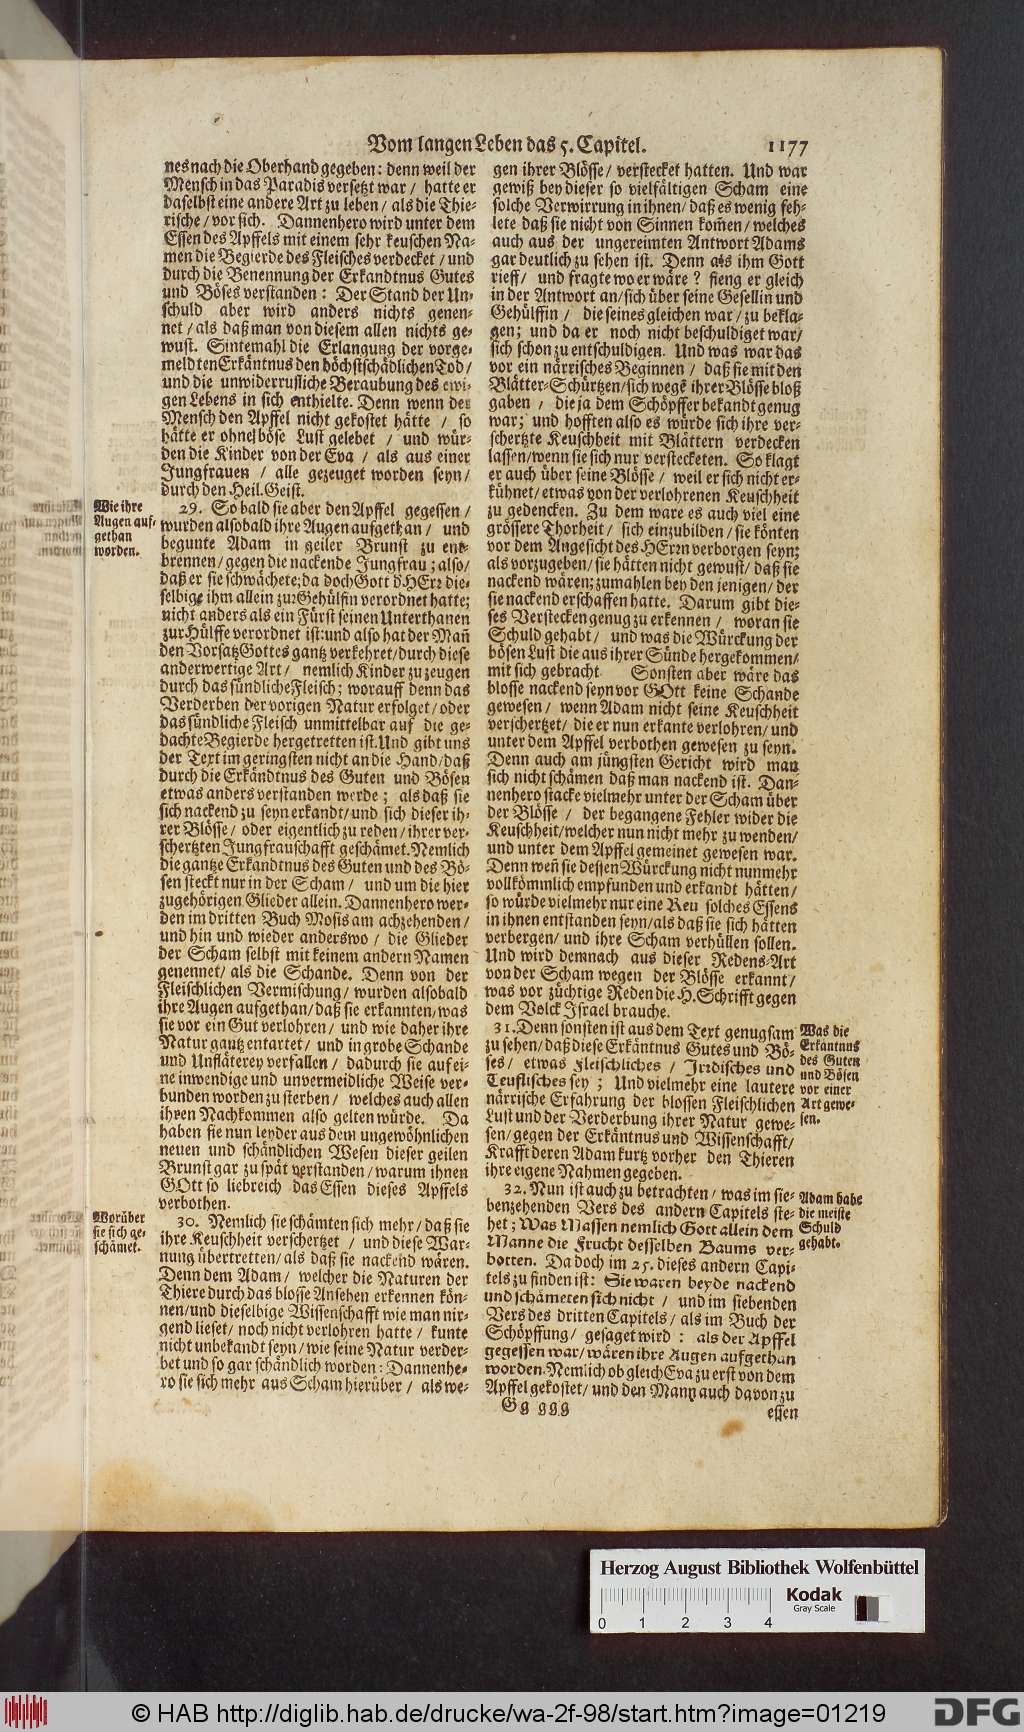 Vom langen Leben das 5. Capitel. 1177
nes nach die Oberhand gegeben: denn weil der
Mensch in das Paradis versetzt war / hatte er
daselbst eine andere Art zu leben / als die Thie-
rische / vor sich. Dannenhero wird unter dem
Essen des Apffels mit einem sehr keuschen Na-
men die Begierde des Fleisches verdecket / und
durch die Benennung der Erkandtnus Gutes
und Böses verstanden: Der Stand der Un-
schuld aber wird anders nichts genen-
net / als daß man von diesem allen nichts ge-
wust. Sintemahl die Erlangung der vorge-
meldten Erkäntnus den höchstschädlichen Tod /
und die unwiderrufliche Beraubung des ewi-
gen Lebens in sich enthielte. Denn wenn der
Mensch den Apffel nicht gekostet hätte / so
hätte er ohne böse Lust gelebet / und wür-
den die Kinder von der Eva / als aus einer
Jungfrauen / alle gezeuget worden seyn /
durch den Heil. Geist.
Wie ihre
Augen auf-
gethan
worden.
29. So bald sie aber den Apffel gegessen /
wurden alsobald ihre Augen aufgethan / und
begunte Adam in geiler Brunst zu ent-
brennen / gegen die nackende Jungfrau; also /
daß er sie schwächete; da doch Gott d' HErr die-
selbige ihm allein zur Gehülfin verordnet hatte;
nicht anders als ein Fürst seinen Unterthanen
zur Hülffe verordnet ist: und also hat der Mañ
den Vorsatz Gottes gantz verkehret / durch diese
anderwertige Art / nemlich Kinder zu zeugen
durch das sündliche Fleisch; worauff denn das
Verderben der vorigen Natur erfolget / oder
das sündliche Fleisch unmittelbar auf die ge-
dachte Begierde hergetretten ist. Und gibt uns
der Text im geringsten nicht an die Hand / daß
durch die Erkändtnus des Guten und Bösen
etwas anders verstanden werde; als daß sie
sich nackend zu seyn erkandt / und sich dieser ih-
rer Blösse / oder eigentlich zu reden / ihrer ver-
schertzten Jungfrauschafft geschämet. Nemlich
die gantze Erkandtnus des Guten und des Bö-
sen steckt nur in der Scham / und um die hier
zugehörigen Glieder allein. Dannenhero wer-
den im dritten Buch Mosis am achzehenden /
und hin und wieder anderswo / die Glieder
der Scham selbst mit keinem andern Namen
genennet / als die Schande. Denn von der
Fleischlichen Vermischung / wurden alsobald
ihre Augen aufgethan / daß sie erkannten / was
sie vor ein Gut verlohren / und wie daher ihre
Natur gantz entartet / und in grobe Schande
und Unfläterey verfallen / dadurch sie auf ei-
ne inwendige und unvermeidliche Weise ver-
bunden worden zu sterben / welches auch allen
ihren Nachkommen also gelten würde. Da
haben sie nun leyder aus dem ungewöhnlichen
neuen und schändlichen Wesen dieser geilen
Brunst gar zu spät verstanden / warum ihnen
GOtt so liebreich das Essen dieses Apffels
verbothen.
Worüber
sie sich ge-
schämet.
30. Nemlich sie schämten sich mehr / daß sie
ihre Keuschheit verschertzet / und diese War-
nung übertretten / als daß sie nackend wären.
Denn dem Adam / welcher die Naturen der
Thiere durch das blosse Ansehen erkennen kön-
nen / und dieselbige Wissenschafft wie man nir-
gend lieset / noch nicht verlohren hatte / kunte
nicht unbekandt seyn / wie seine Natur verder-
bet und so gar schändlich worden: Dannenhe-
ro sie sich mehr aus Scham hierüber / als we-
gen ihrer Blösse / verstecket hatten. Und war
gewiß bey dieser so vielfältigen Scham eine
solche Verwirrung in ihnen / daß es wenig feh-
lete daß sie nicht von Sinnen kom̃en / welches
auch aus der ungereimten Antwort Adams
gar deutlich zu sehen ist. Denn als ihm Gott
rieff / und fragte wo er wäre? fieng er gleich
in der Antwort an / sich über seine Gesellin und
Gehülffin / die seines gleichen war / zu bekla-
gen; und da er noch nicht beschuldiget war /
sich schon zu entschuldigen. Und was war das
vor ein närrisches Beginnen / daß sie mit den
Blätter-Schürtzen / sich wegẽ ihrer Blösse bloß
gaben / die ja dem Schöpffer bekandt genug
war; und hofften also es würde sich ihre ver-
schertzte Keuschheit mit Blättern verdecken
lassen / wenn sie sich nur versteckten. So klagt
er auch über seine Blösse / weil er sich nicht er-
kühnet / etwas von der verlohrenen Keuschheit
zu gedencken. Zu dem ware es auch viel eine
grössere Thorheit / sich einzubilden / sie könten
vor dem Angesicht des HErrn verborgen seyn;
als vorzugeben / sie hätten nicht gewust / daß sie
nackend wären; zumahlen bey den jenigen / der
sie nackend erschaffen hatte. Darum gibt die-
ses Verstecken genug zu erkennen / woran sie
Schuld gehabt / und was die Würckung der
bösen Lust die aus ihrer Sünde hergekommen /
mit sich gebracht. Sonsten aber wäre das
blosse nackend seyn vor GOtt keine Schande
gewesen / wenn Adam nicht seine Keuschheit
verschertzet / die er nun erkante verlohren / und
unter dem Apffel verbothen gewesen zu seyn.
Denn auch am jüngsten Gericht wird man
sich nicht schämen daß man nackend ist. Dan-
nenhero stacke vielmehr unter der Scham über
der Blösse / der begangene Fehler wider die
Keuschheit / welcher nun nicht mehr zu wenden /
und unter dem Apffel gemeinet gewesen war.
Denn weñ sie dessen Würckung nicht nunmehr
vollkömmlich empfunden und erkandt hätten /
so würde vielmehr nur eine Reu solches Essens
in ihnen entstanden seyn / als daß sie sich hätten
verbergen / und ihre Scham verhüllen sollen.
Und wird demnach aus dieser Redens-Art
von der Scham wegen der Blösse erkannt /
was vor züchtige Reden die H. Schrifft gegen
dem Volck Israel brauche.
31. Denn sonsten ist aus dem Text genugsam
zu sehen / daß diese Erkäntnus Gutes und Bö-
ses / etwas Fleischliches / Irrdisches und
Teuflisches sey; Und vielmehr eine lautere
närrische Erfahrung der blossen Fleischlichen
Lust und der Verderbung ihrer Natur gewe-
sen / gegen der Erkäntnus und Wissenschafft /
Krafft deren Adam kurtz vorher den Thieren
ihre eigene Nahmen gegeben.
Was die
Erkäntnus
des Guten
und Bösen
vor einer
Art gewe-
sen.
32. Nun ist auch zu betrachten / was im sie-
benzehenden Vers des andern Capitels ste-
het; Was Massen nemlich Gott allein dem
Manne die Frucht desselben Baums ver-
botten. Da doch im 25. dieses andern Capi-
tels zu finden ist: Sie waren beyde nackend
und schämeten sich nicht / und im siebenden
Vers des dritten Capitels / als im Buch der
Schöpffung / gesaget wird: als der Apffel
gegessen war / wären ihre Augen aufgethan
worden. Nemlich ob gleich Eva zu erst von dem
Apffel gekostet / und den Mann auch davon zu
Adam habe
die meiste
Schuld
gehabt.
Gg ggg
essen
Herzog August Bibliothek Wolfenbüttel
Kodak
Gray Scale
0 1 2 3 4
© HAB http://diglib.hab.de/drucke/wa-2f-98/start.htm?image=01219
DFG